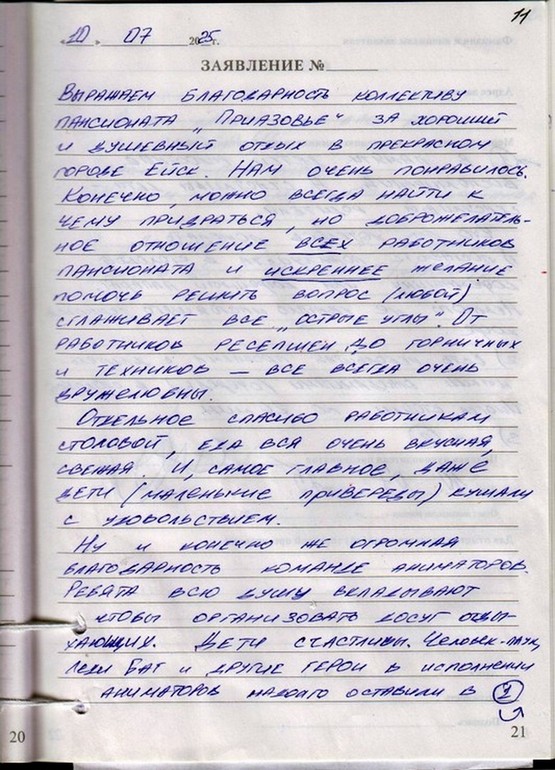 11
«10» 07 2025 г.
ЗАЯВЛЕНИЕ №
Выражаем благодарность коллективу
пансионата „Приазовье" за хороший
и душевный отдых в прекрасном
городе Ейск. Нам очень понравилось.
Конечно, можно всегда найти к
чему придраться, но доброжелатель-
ное отношение всех работников
пансионата и искреннее желание
помочь решить вопрос (любой)
сглаживает все „острые углы". От
работников ресепшен до горничных
и техников — все всегда очень
дружелюбны.
Отдельное спасибо работникам
столовой, еда вся очень вкусная,
свежая. И, самое главное, даже
дети (маленькие привереды) кушали
с удовольствием.
Ну и конечно же огромная
благодарность команде аниматоров.
Ребята всю душу вкладывают
чтобы организовать досуг отды-
хающих. Дети счастливы. Человек-паук,
Леди Баг и другие герои в исполнении
аниматоров надолго оставили в
20
21